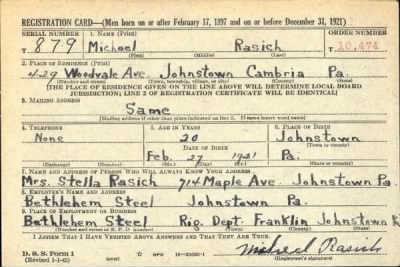 REGISTRATION CARD—(Men born on or after February 17, 1897 and on or before December 31, 1921)
SERIAL NUMBER 1. NAME (Print) ORDER NUMBER
T 879 Michael Rasich 10,474
(First) (Middle) (Last)
2. PLACE OF RESIDENCE (Print)
429 Woodvale Ave. Johnstown Cambria Pa.
(Number and street) (Town, township, village, or city) (County) (State)
[THE PLACE OF RESIDENCE GIVEN ON THE LINE ABOVE WILL DETERMINE LOCAL BOARD
JURISDICTION; LINE 2 OF REGISTRATION CERTIFICATE WILL BE IDENTICAL]
3. MAILING ADDRESS
Same
[Mailing address if other than place indicated on line 2. If same insert word same]
4. TELEPHONE 5. AGE IN YEARS 6. PLACE OF BIRTH
None 20 Johnstown
DATE OF BIRTH (Town or county)
Feb. 27 1921 Pa.
(Exchange) (Number) (Mo.) (Day) (Yr.) (State or country)
7. NAME AND ADDRESS OF PERSON WHO WILL ALWAYS KNOW YOUR ADDRESS
Mrs. Stella Rasich 714 Maple Ave. Johnstown Pa.
8. EMPLOYER'S NAME AND ADDRESS
Bethlehem Steel Johnstown Pa.
9. PLACE OF EMPLOYMENT OR BUSINESS
Bethlehem Steel Rig. Dept. Franklin Johnstown
(Number and street or R. F. D. number) (Town) (County) (State)
I AFFIRM THAT I HAVE VERIFIED ABOVE ANSWERS AND THAT THEY ARE TRUE.
D. S. S. Form 1
(Revised 1-1-42) GPO Michael Rasich
(Registrant's signature)